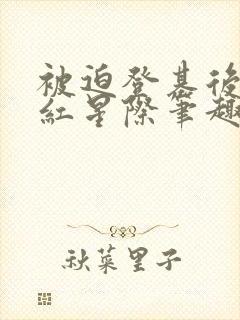 被迫登基後
紅星際筆趣
秋菜里子